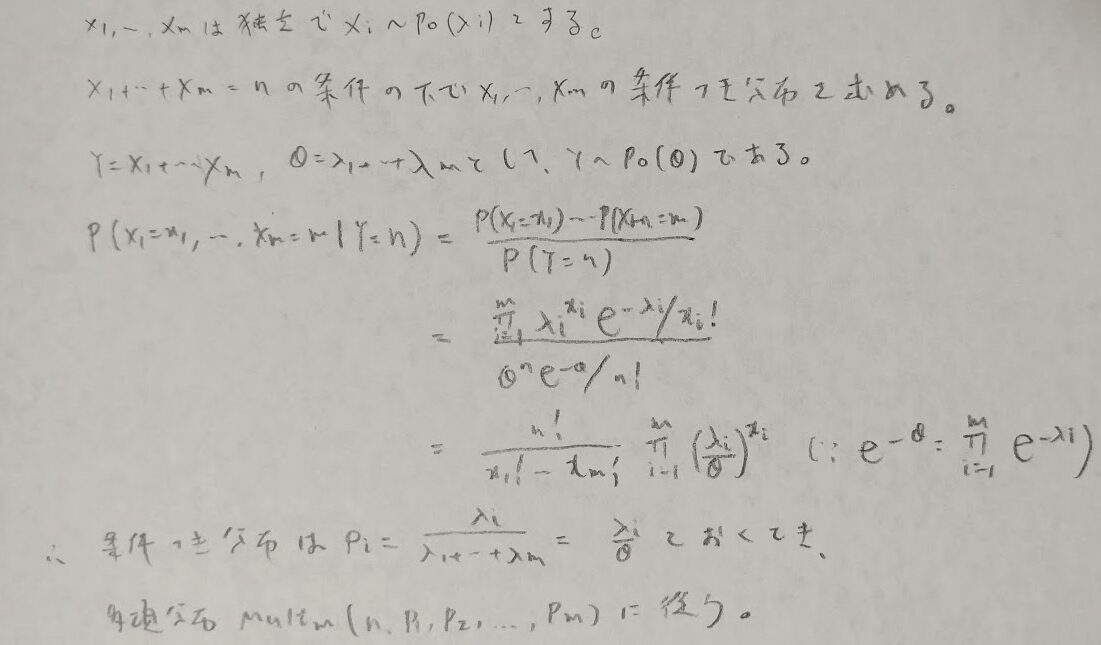 X₁, …, Xₘ は 独立で Xᵢ ~ Po(λᵢ) とする。
X₁+…+Xₘ = n の条件の下で X₁, …, Xₘ の条件つき分布を求める。
Y = X₁+…Xₘ, θ = λ₁+…+λₘ として、Y ~ Po(θ) である。
P(X₁=x₁, …, Xₘ=m | Y=n) = P(X₁=x₁)…P(Xₘ=m) / P(Y=n)
= ∏ᵢ₌₁ᵐ λᵢ^xᵢ e^-λᵢ/xᵢ! / θⁿe^-θ/n!
= n! / x₁!…xₘ! ∏ᵢ₌₁ᵐ (λᵢ/θ)^xᵢ (∵ e^-θ = ∏ᵢ₌₁ᵐ e^-λᵢ)
∴ 条件つき分布は Pᵢ = λᵢ / λ₁+…+λₘ = λᵢ/θ とおくとき、
多項分布 Multₘ(n, P₁, P₂, …, Pₘ) に従う。